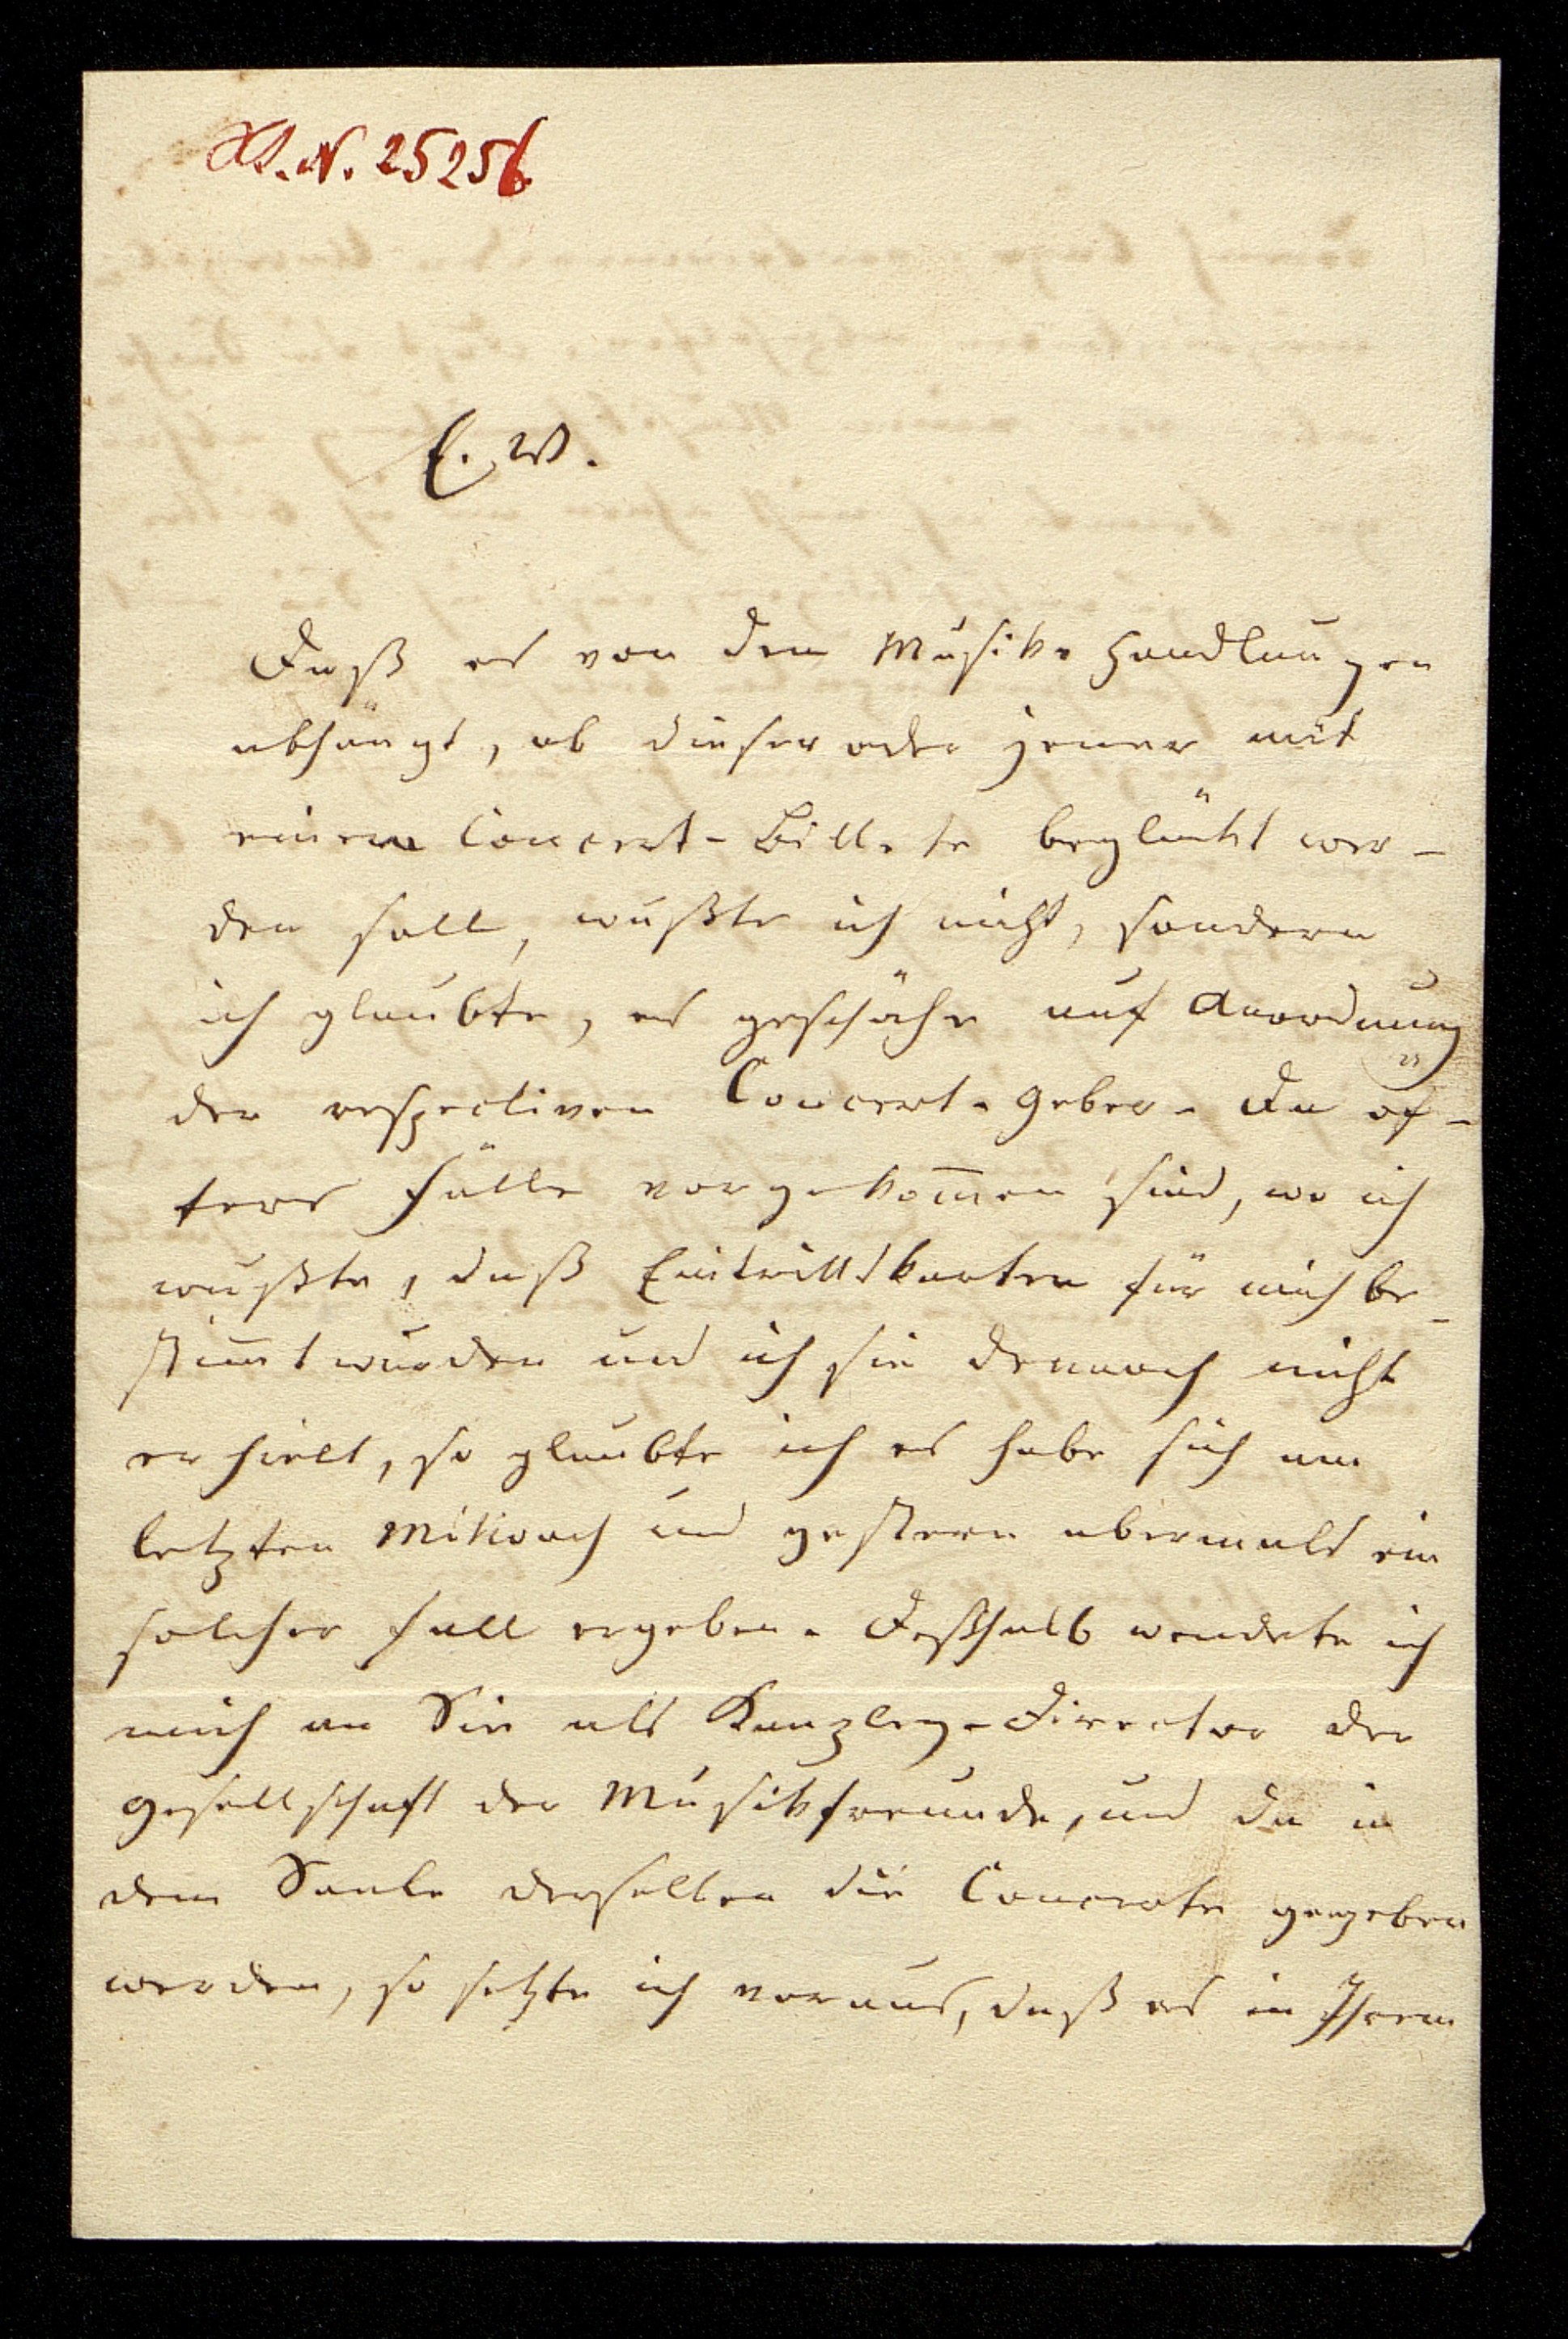 H.I.N. 25256
E. W.
Daß es von den Musik-Handlungen
abhängt, ob dieser oder jener mit
einem Concert-Billete beglückt wer-
den soll, wußte ich nicht, sondern
ich glaubte, es geschähe auf Anordnung
der respectiven Concert-Geber. Da öf-
ters Fälle vorgekom̅en sind, wo ich
wußte, daß Eintrittskarten für mich be-
stim̅t wurden und ich sie dennoch nicht
erhielt, so glaubte ich es habe sich am
letzten Mittwoch und gestern abermals ein
solcher Fall ergeben. Deßhalb wendete ich
mich an Sie als Kanzley-Director der
Gesellschaft der Musikfreunde, und da in
dem Saale derselben die Concerte gegeben
werden, so setzte ich voraus, daß es in Ihrem